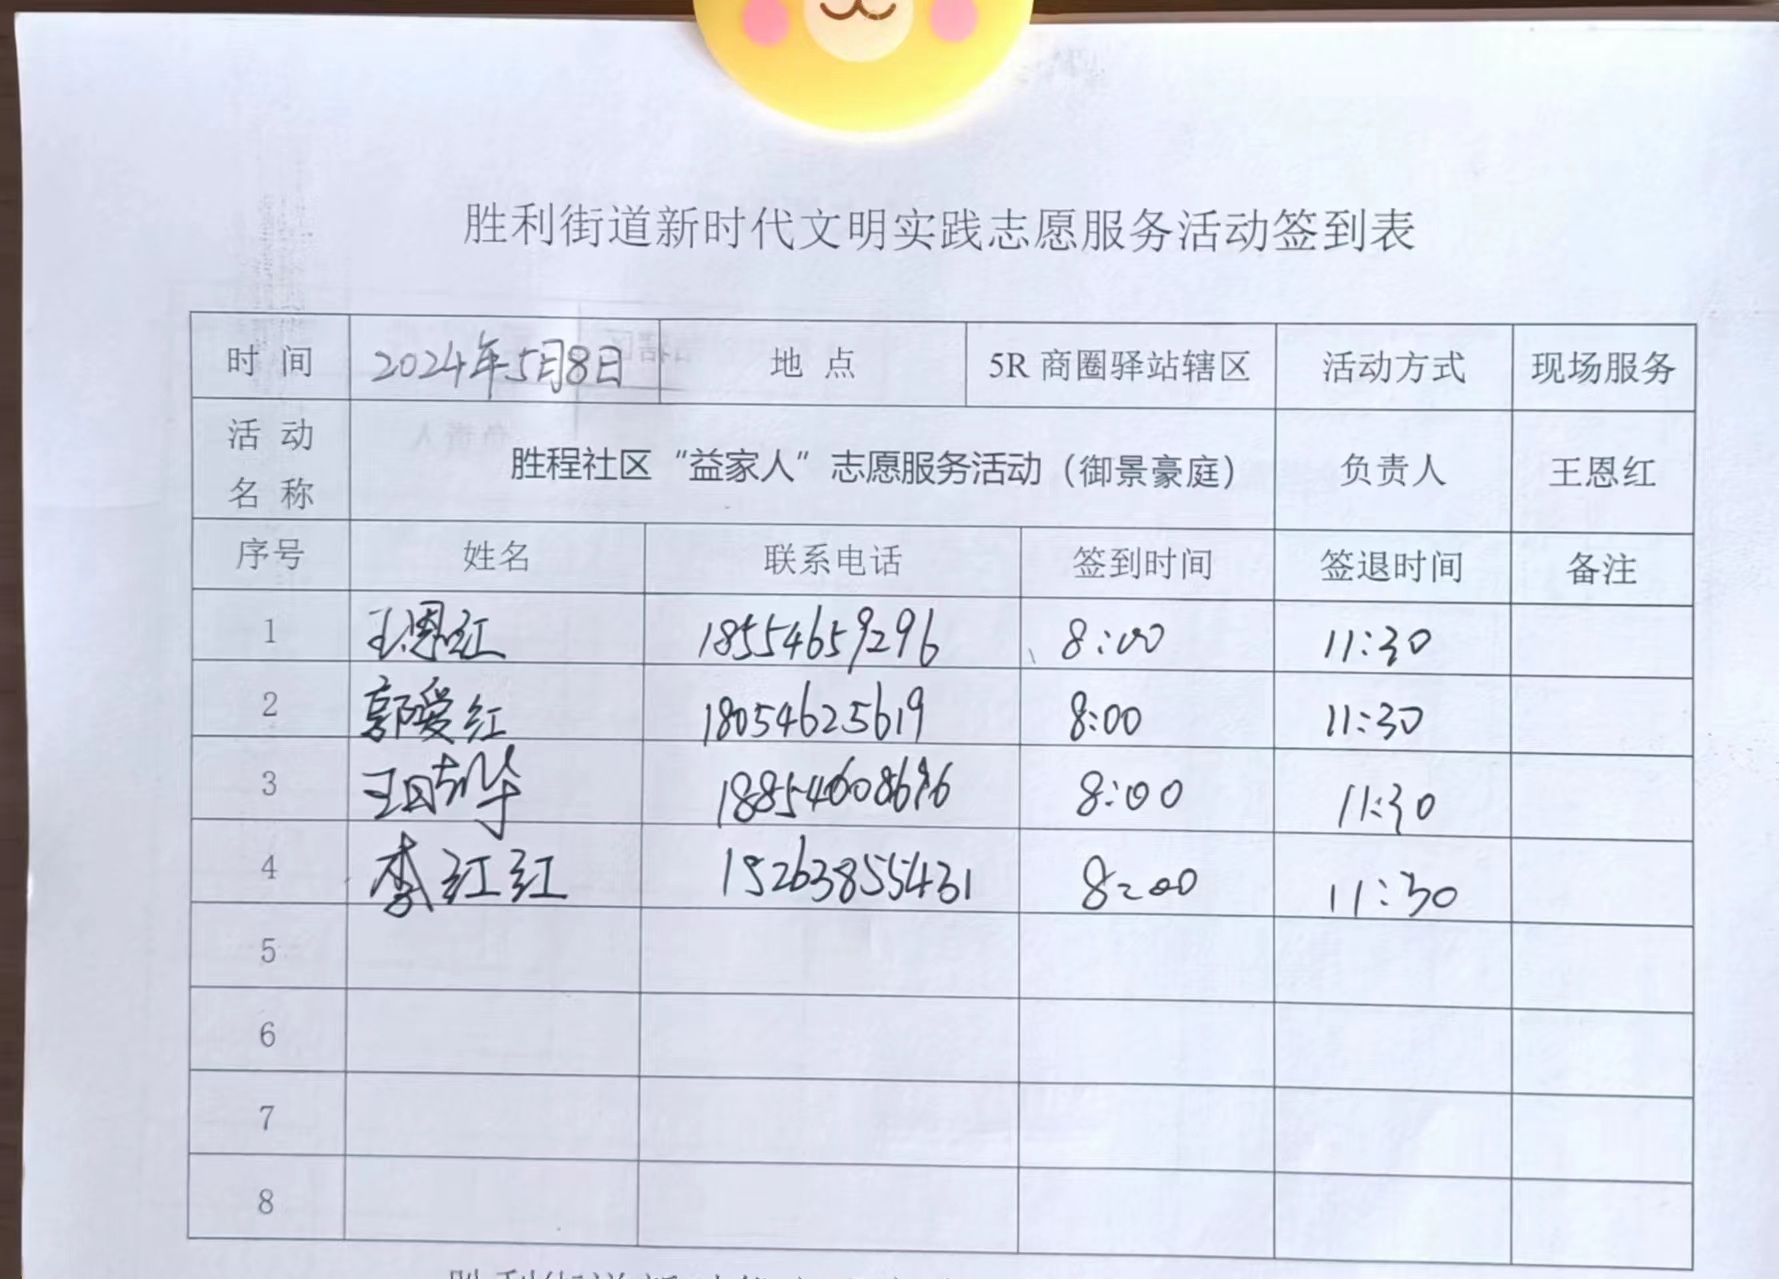 胜利街道新时代文明实践志愿服务活动签到表
时 间 2024年5月8日 地 点 5R 商圈驿站辖区 活动方式 现场服务
活 动 名 称 胜程社区“益家人”志愿服务活动（御景豪庭） 负责人 王恩红
序号 姓名 联系电话 签到时间 签退时间 备注
1 王恩红 18554659296 8:00 11:30
2 郭爱红 18054625619 8:00 11:30
3 18854608696 8:00 11:30
4 李红红 15263855431 8:00 11:30
5
6
7
8